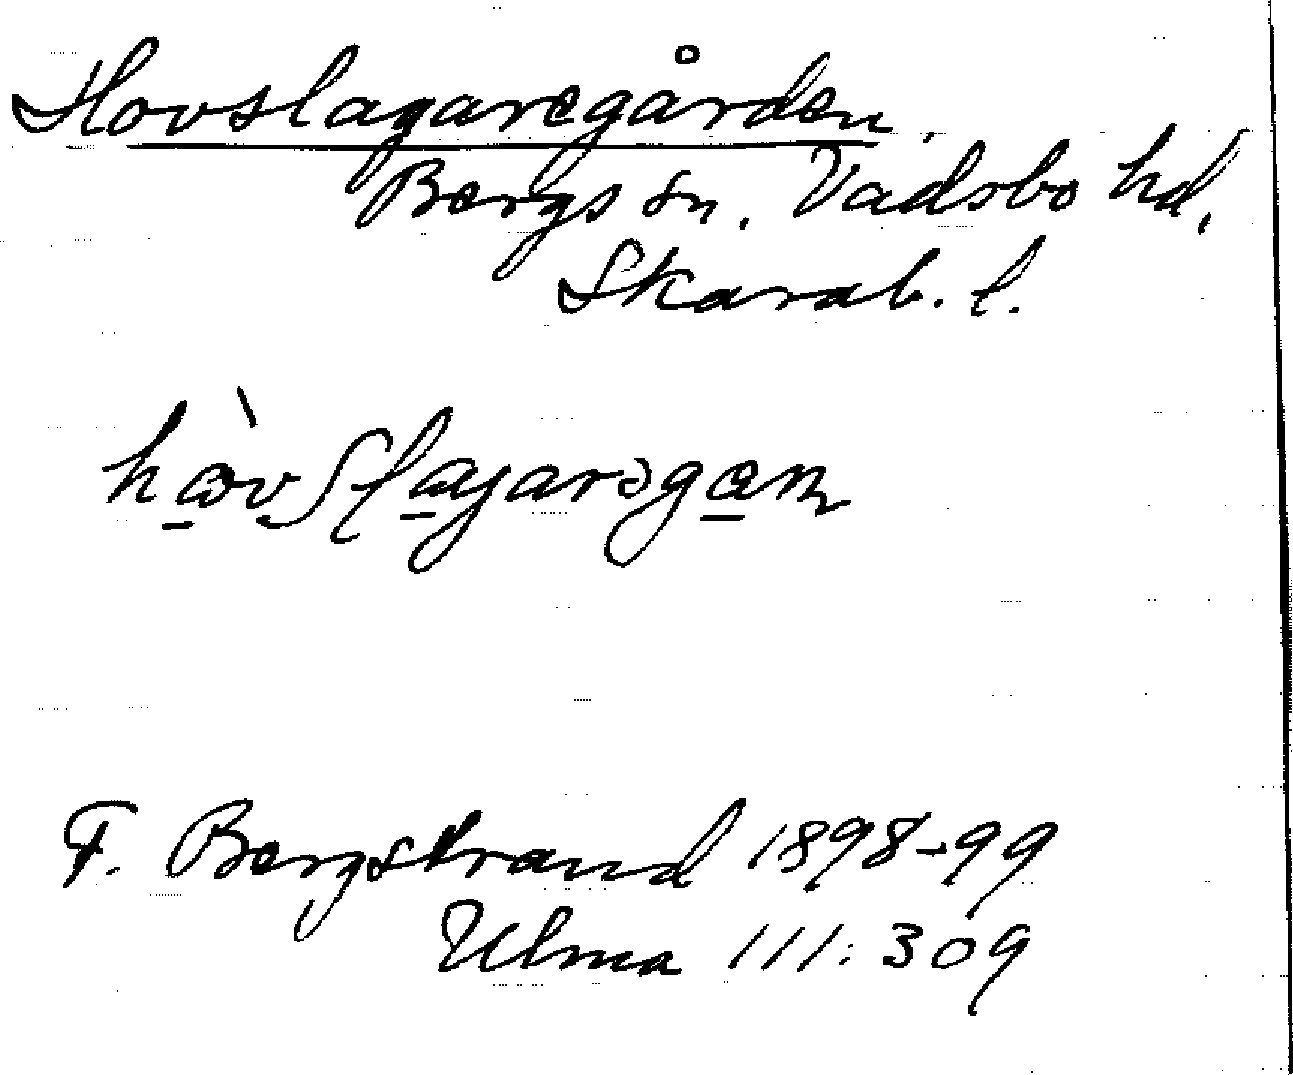 Hovslagaregården.
Bergs sn. Vadsbo hd.
Skarab. l.
F. Bergstrand 1898-99
Ulma 111:309